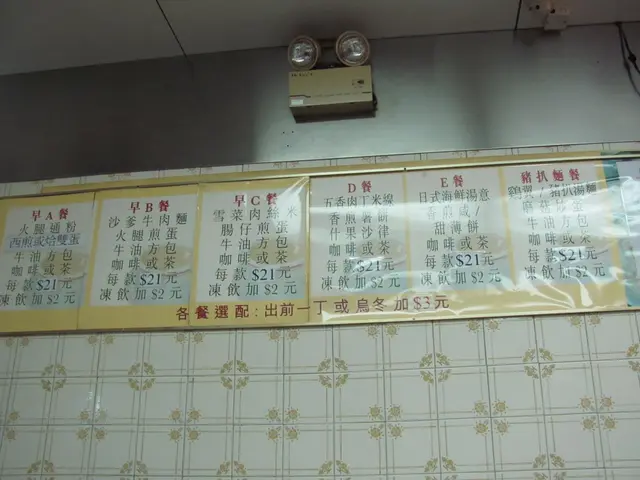 早A餐
火腿通粉
西煎或烚雙蛋
牛油方包
咖啡或茶
每款$21元
凍飲加$2元
早B餐
沙爹牛肉麵
火腿煎蛋
牛油方包
咖啡或茶
每款$21元
凍飲加$2元
早C餐
雪菜肉絲米
腸仔煎蛋
牛油方包
咖啡或茶
每款$21元
凍飲加$2元
D餐
五香肉丁米線
香煎薯餅
什果沙律
咖啡或茶
每款$21元
凍飲加$2元
E餐
日式海鮮湯意
香煎或/
甜薄餅
咖啡或茶
每款$21元
凍飲加$2元
豬扒麵餐
咖啡或茶
每款$21元
凍飲加$2元
各餐選配:出前一丁或烏冬加$3元